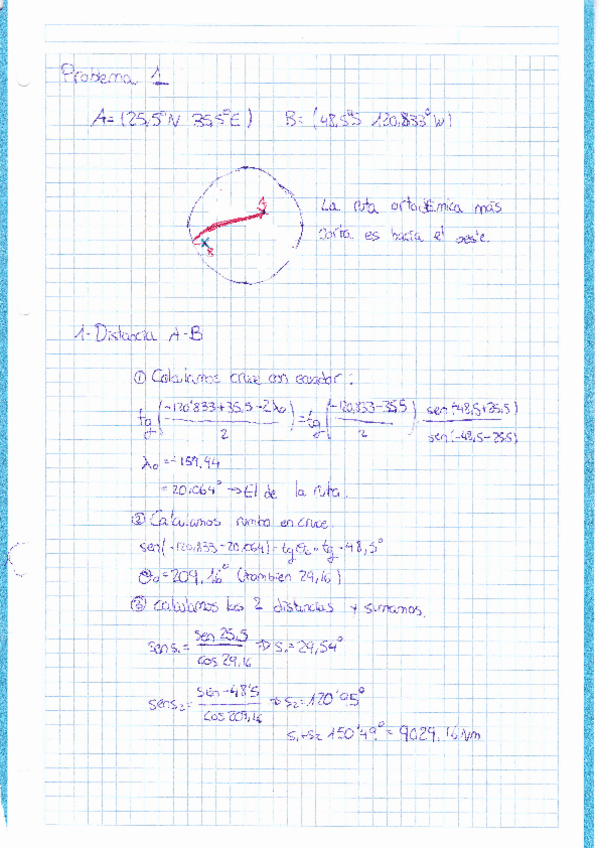 Problema 1
A = (25,5°N 35,5°E) B = (48,5°S 120,833°W)
A
B
La ruta ortodrómica más
corta es hacia el oeste.
1- Distancia A-B
① Calculamos cruce con ecuador:
tg(-120'833+35,5-2λ₀ / 2) = tg(-120,833-35,5 / 2) · sen(-48,5+25,5) / sen(-48,5-25,5)
λ₀ = -159,94
= 20,064° → El de la ruta.
② Calculamos rumbo en cruce.
sen(-120,833-20,064) = tg θ₀ · tg -48,5°
θ₀ = 209,16° (también 29,16)
③ Calculamos las 2 distancias y sumamos.
sen s₁ = sen 25,5 / cos 29,16 → s₁ = 29,54°
sen s₂ = sen -48'5 / cos 209,16 → s₂ = 120'95°
s₁+s₂ 150'49° = 9029,16 Nm